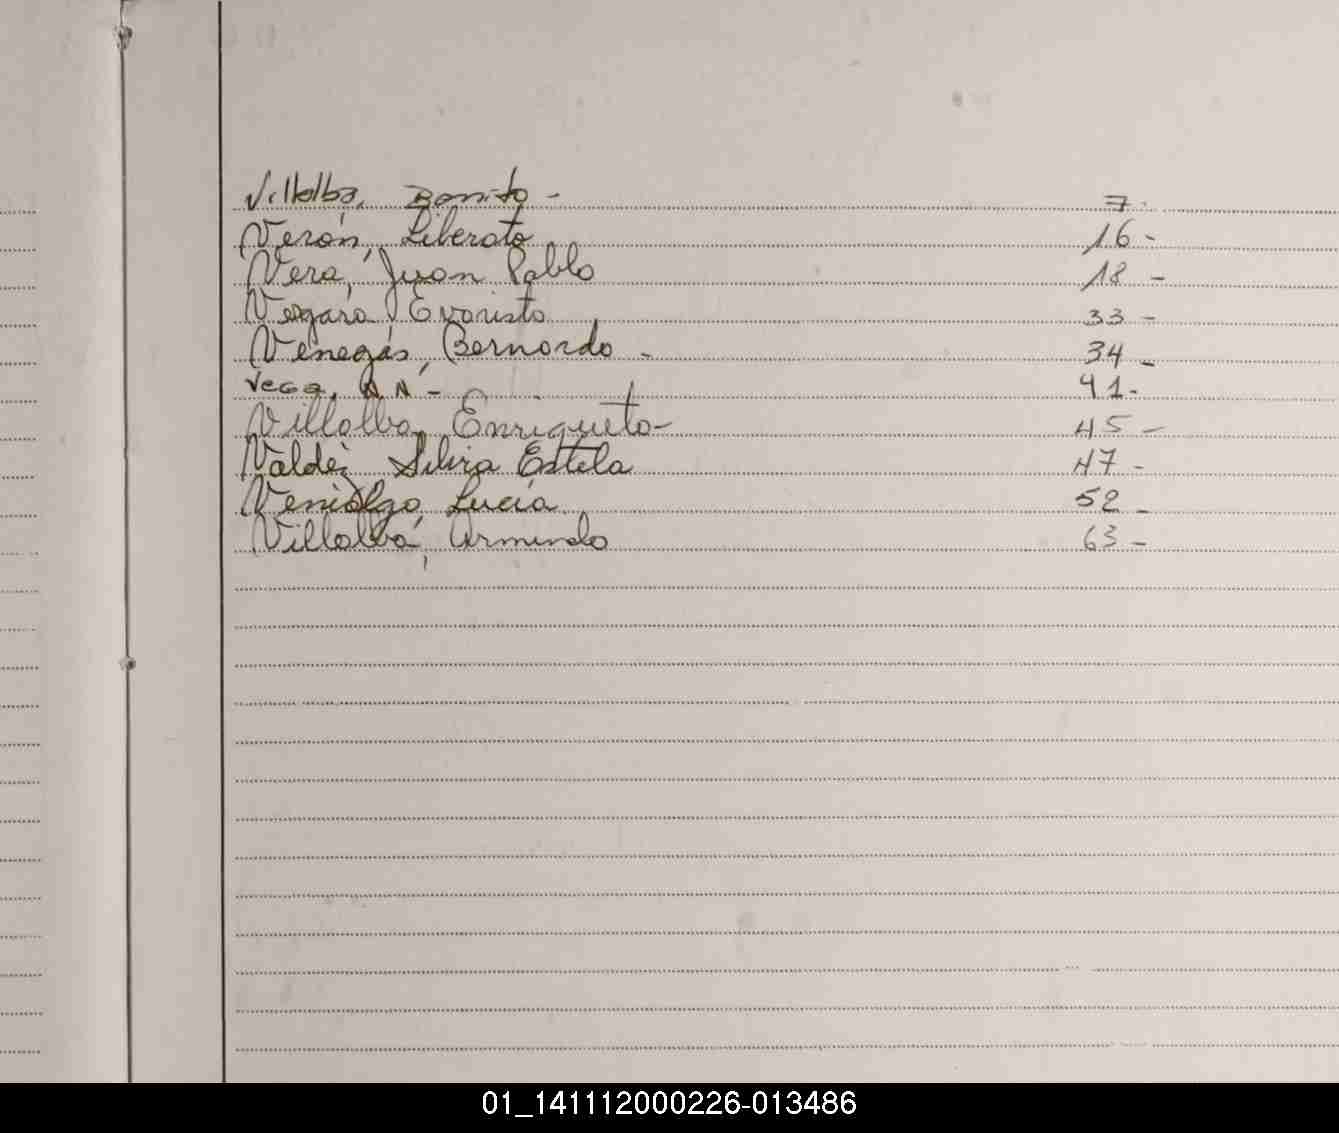 Villalba, Benito - 7-
Verón, Liberato 16-
Vera, Juan Pablo 18-
Vergara, Evaristo 33-
Venegas, Bernardo - 34-
Vega, N.N. - 41-
Villalba, Enriqueta- 45-
Valdéz Silvia Estela 47-
Venialgo, Lucía 52-
Villalba, Armindo 63-
01_141112000226-013486